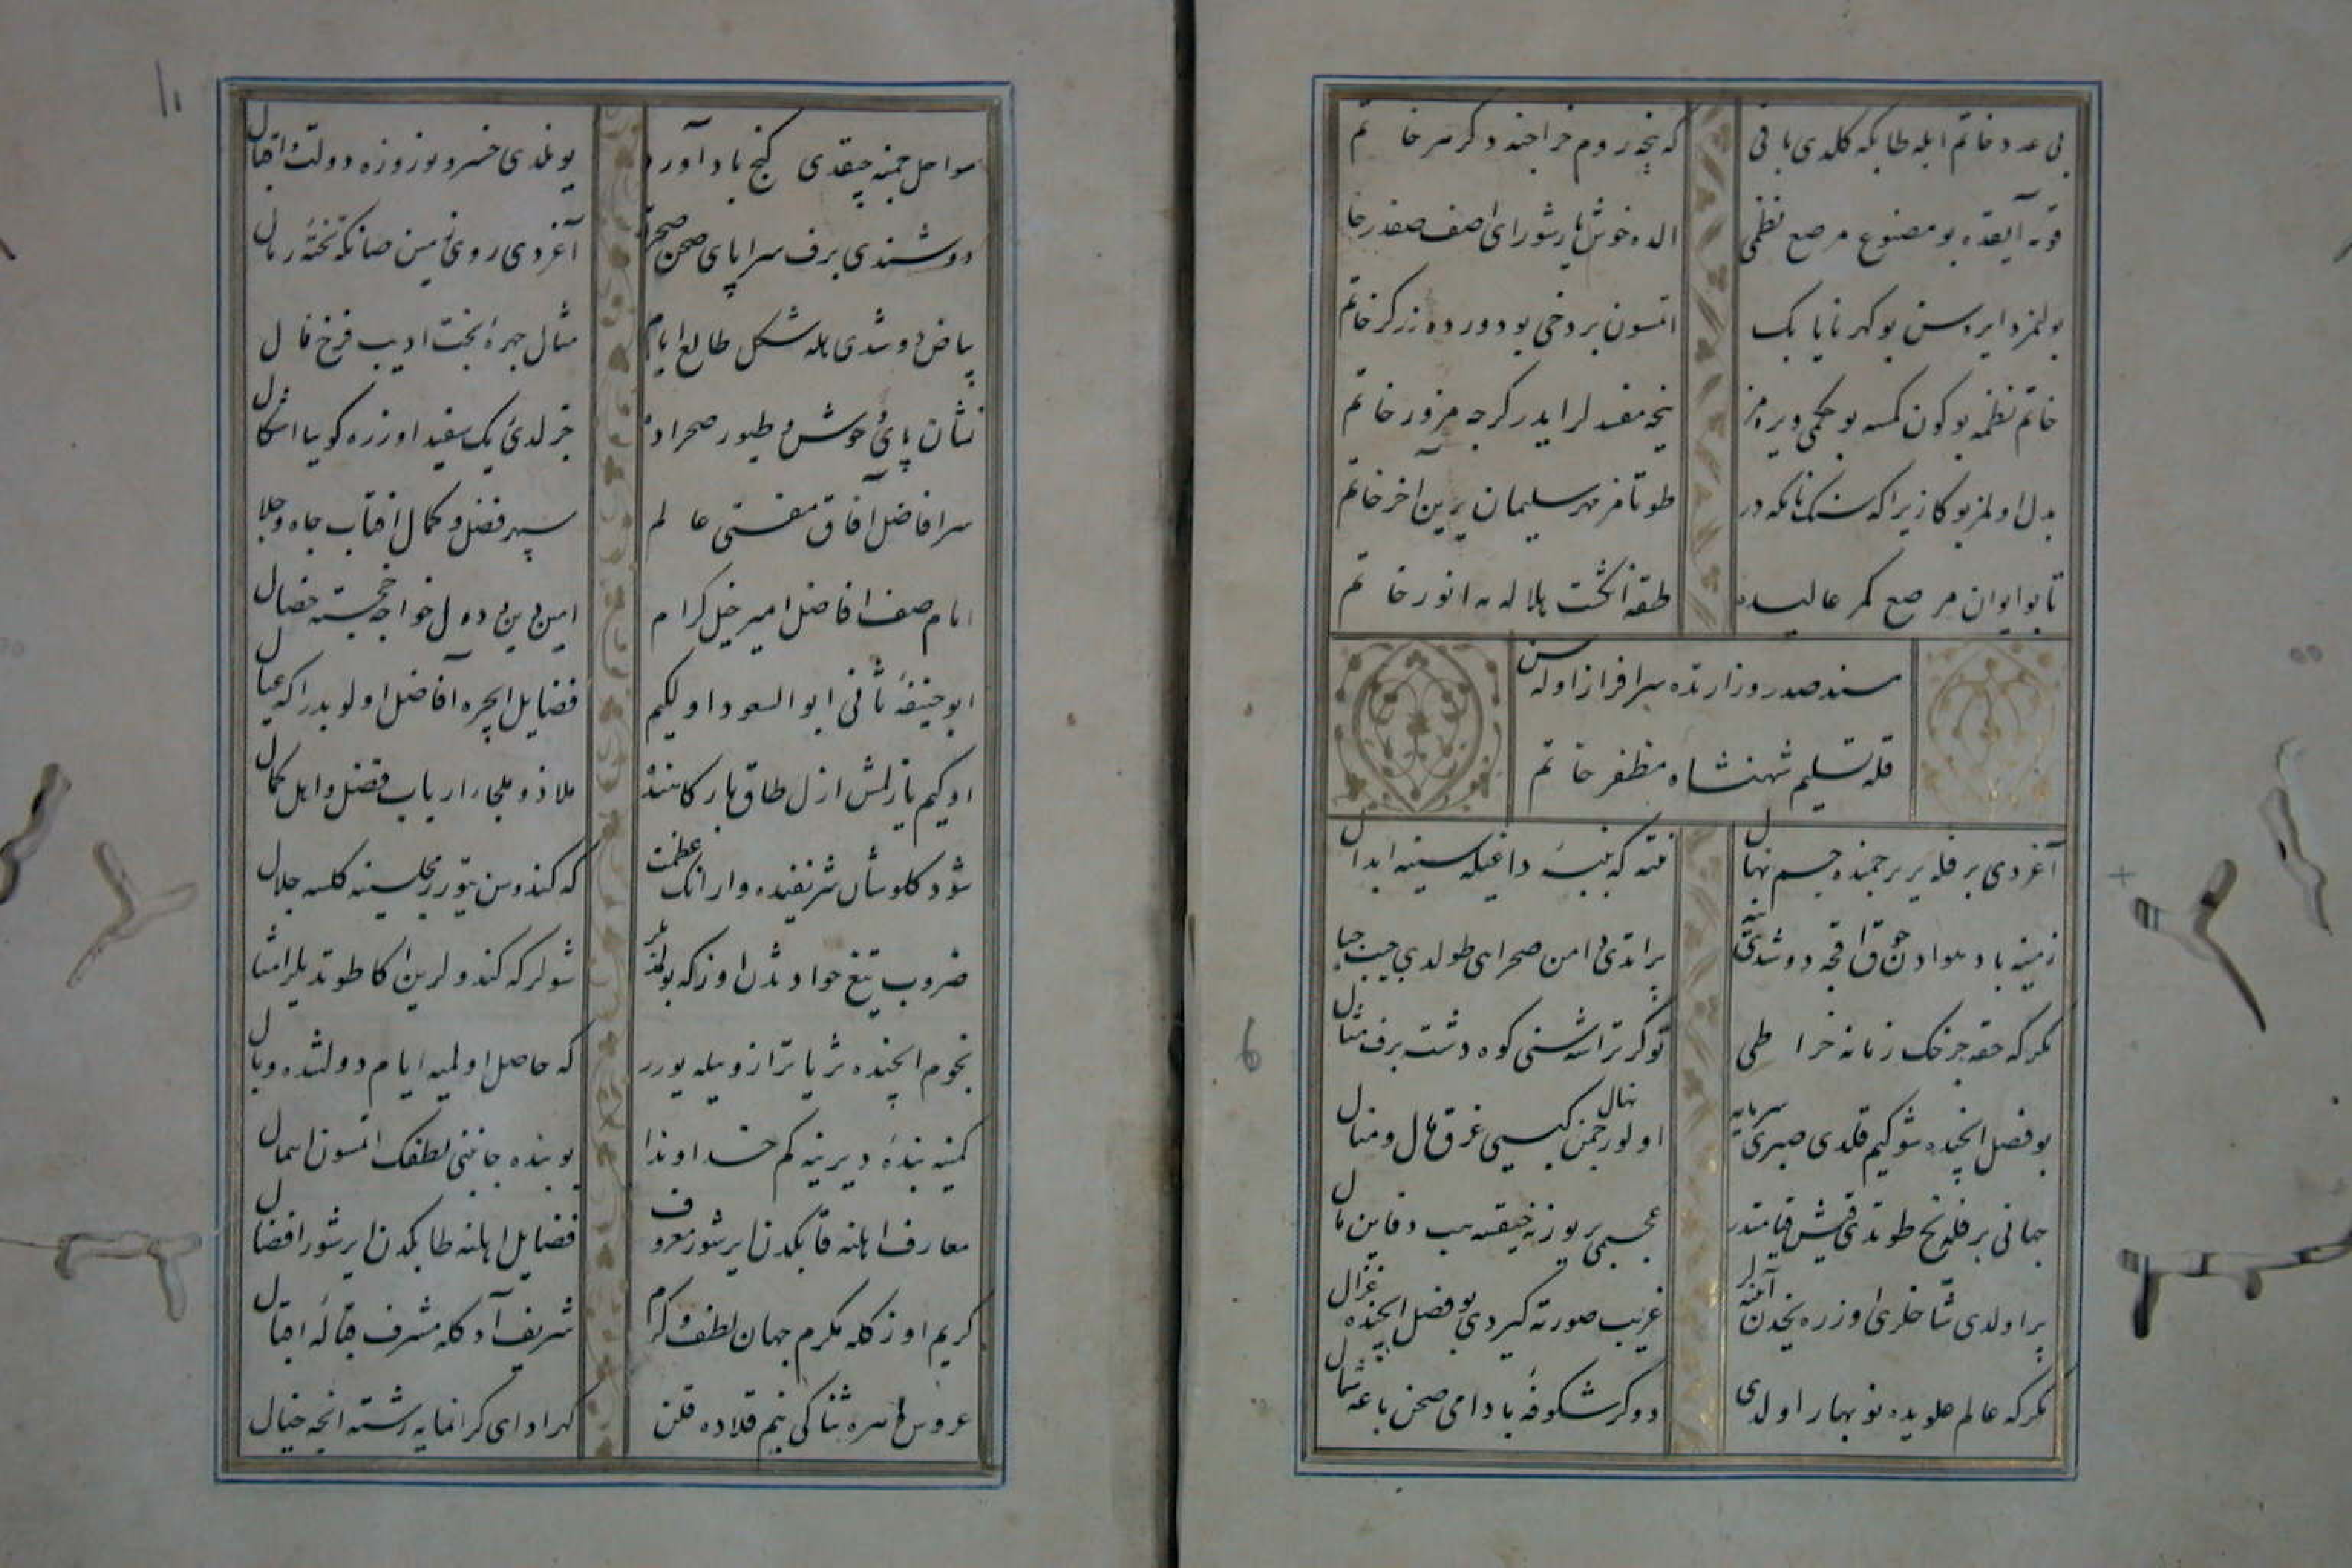 بی عدد خاتم ایله طا بکه کلدی باقی که نیجه روم خراجنه دکر هر خاتم
بو مصنوع مرصع نظمی الده خوش یارشور ای آصف صفدر خاتم
بولنمز دایرەسن بو کهر نایابک اتسون بردخی بو دورده زرکر خاتم
خاتم نظمنه بوکون کمسه بو حکمی ویرەمز نیجه مفسدلر ایدر کرچه مزور خاتم
بدل اولمز بوکا زیرا که سنک نامکه در طوتامز مهر سلیمان یرین آخر خاتم
تا بو ایوان مرصع کمر عالیده طقه انکشت هلاله مه انور خاتم
مسند صدر وزارتده سرافراز اولەسن
قله تسلیم شهنشاه مظفر خاتم
آغردی برفله یر یر چمنده جسم نهال نته که پنبهٔ داغیله سینهٔ ابدال
زمینه باد هوادن آقچه دوشدی براتدی دامن صحرا طولدی جیب جبال
مکر که حقه چرخک زمانه خراطی توکر تراشه سنی کوه و دشته برف مثال
بو فصل ایچنده شو کیم قلدی صبری سرمایه اولور چمن کیسی غرق مال و منال
جهانی برفله یخ طوتدی قیش قیامتدر عجبمی یر یوزنه چیقسه هب دفاین مال
پر اولدی شاخلری اوزره یخدن آینه‌لر غریب صورته کیردی بو فصل ایچنده غزال
مکر که عالم علویده نوبهار اولدی دوکر شکوفهٔ بادامی صحن باغه شمال
سواحل چمنه چیقدی کنج باد آورد بولندی خسرو نوروزه دولت و اقبال
دوشندی برف سراپای صحن صحرایه آغردی روی زمین صانکه تختهٔ رمال
بیاض دوشدی هله شکل طالع ایام مثال چهرهٔ بخت ادیب فرخ فال
نشان پای وحوش و طیور صحراده چزلدی یک سفید اوزره کوییا اشکال
سر افاضل آفاق مفتی عالم سپهر فضل و کمال افتاب جاه و جلال
امام صف افاضل امیر خیل کرام امین دین و دول خواجهٔ خجسته خصال
ابو حنیفهٔ ثانی ابو السعود اولکیم فضایل ایچره افاضل اولوبدر اکا عیال
اوکیم یازلمش ازل طاق بارکاهنده ملاذ و ملجاء ارباب فضل و اهل کمال
شو دکلو شان شریفنده وار انک عظمت که کندوسن یتورر مجلسینه کلسه جلال
ضروب تیغ حوادثدن اوزکه بولمزلر شولر که کندولرین اکا طوتدیلر امثال
نجوم ایچنده ثریا ترازویله یورر که حاصل اولمیه ایام دولتنده وبال
کمینه بندهٔ دیرینه کم خداوندا بو بنده جانبنی لطفک اتمسون اهمال
معارف اهلنه قاپکدن ایریشور معروف فضایل اهلنه طاپکدن ایریشور افضال
کریم اوزکله مکرم جهان لطف و کرم شریف آدکله مشرف قبالهٔ اقبال
عروس دهره ثناکی بنم قلاده قلن کهر ادای کرانمایه رشته انجه خیال